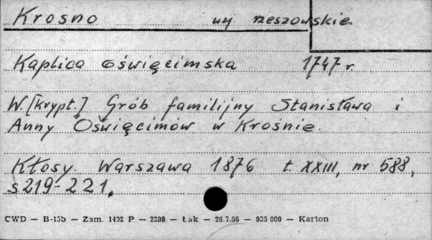 Krosno wj rzeszowskie
Kaplica Oświęcimska 1747 r.
W. [krypt.] Grób familijny Stanisława i
Anny Oświęcimów w Krośnie.
Kłosy. Warszawa 1876 t. XXIII, nr 588,
s 219-221.
CWD — B-15b — Zam. 1492 P — 2398 — Łak — 26.7.56 — 935 000 — Karton